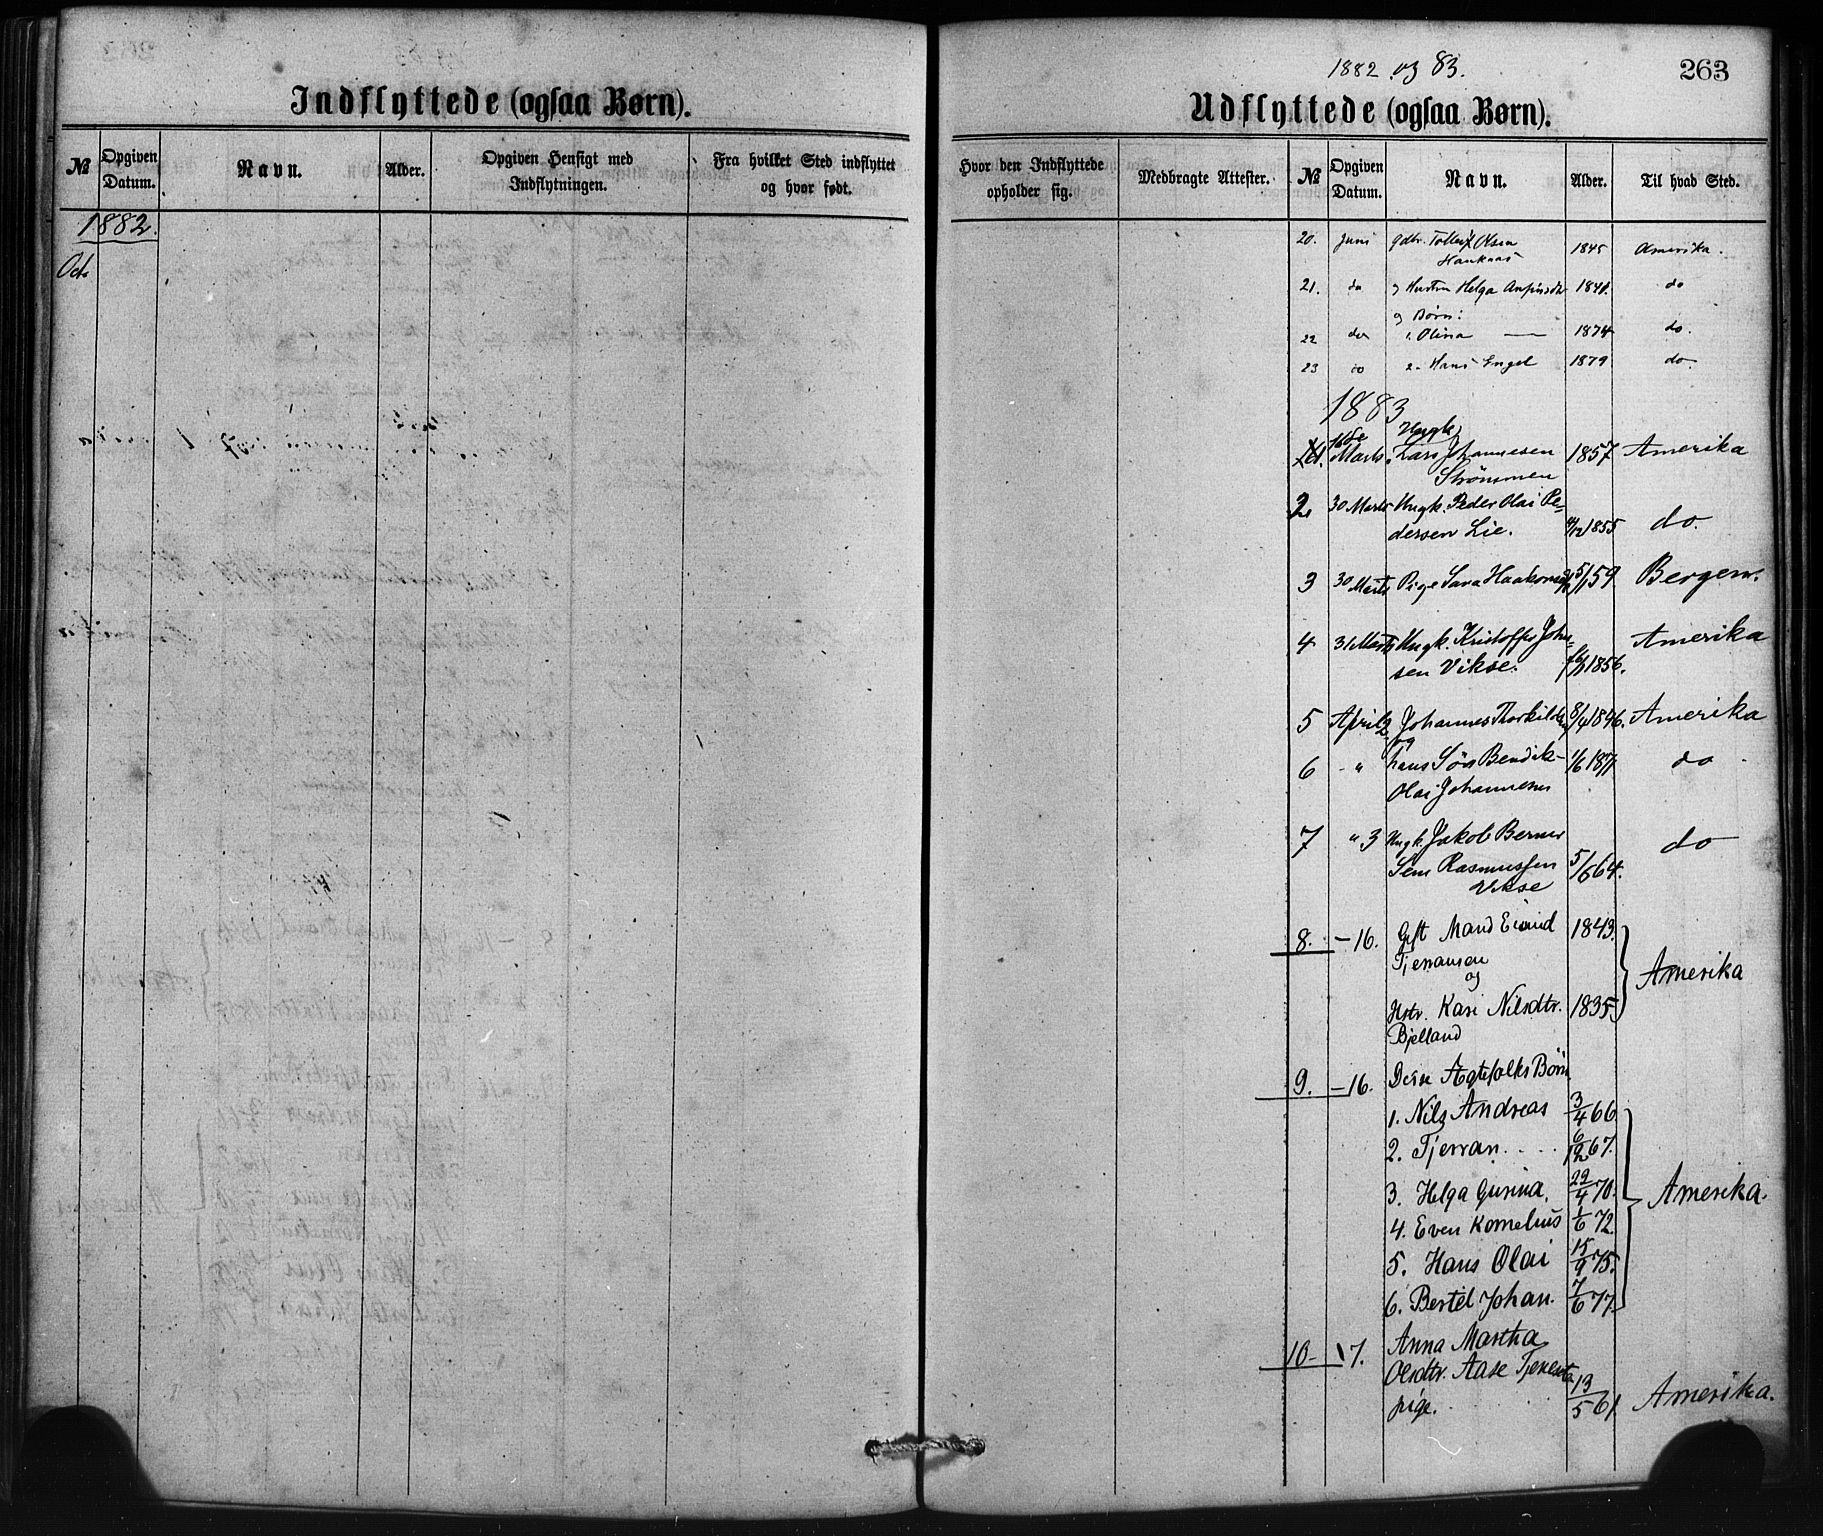 Indflyttede (ogsaa Børn).
№ Opgiven Datum. Navn. Alder. Opgiven Hensigt med Indflytningen. Fra hvilket Sted indflyttet og hvor født.
1882.
Oct.
1882 og 83.
263
Udflyttede (ogsaa Børn).
Hvor den Indflyttede opholder sig. Medbragte Attester. № Opgiven Datum. Navn. Alder. Til hvad Sted.
20. Juni Gdbr. Tollef Olsen 1845 Amerika.
21. do og Hustru Helga 1840. do
og Børn:
22 do 1. Olina — 1874 do.
23 do 2. Hans Engel 1879 do.
1883
Ungk.
1. Marts. Lars Johannesen 1857 Amerika
Strømmen
2. 30 Marts Ungk. Peder Olai Pe-
dersen Lie. 1855 do.
3 30 Marts Pige Sara Haakons 5/1 59. Bergen.
4 31 Marts Ungk. Kristoffer John- Amerika
sen Vikse. 1856.
5 April 2 Johannes Thorkildsen 8/4 1846. Amerika
og
6 - " hans Søn Bendik 1/6 1871 do
Olai Johannesen
7 " 3 Ungk. Jakob Berner do
Sem Rasmussen 5/6 64.
Vikse
8. — 16. Gift Mand Eivind 1843.
Tjerransen
og Amerika
Hstr. Kari Nilsdtr. 1835
Bjelland
9. — 16. Disse Ægtefolks Børn
1. Nils Andreas 3/4 66.
2. Tjerran..... 6/12 67.
3. Helga Gurina. 22/4 70. Amerika.
4. Even Kornelius 1/6 72.
5. Hans Olai 15/9 75.
6. Bertel Johan. 7/6 77.
10 — 17. Anna Martha
Olsdtr. Aase Tjeneste
pige. 13/5 61. Amerika.